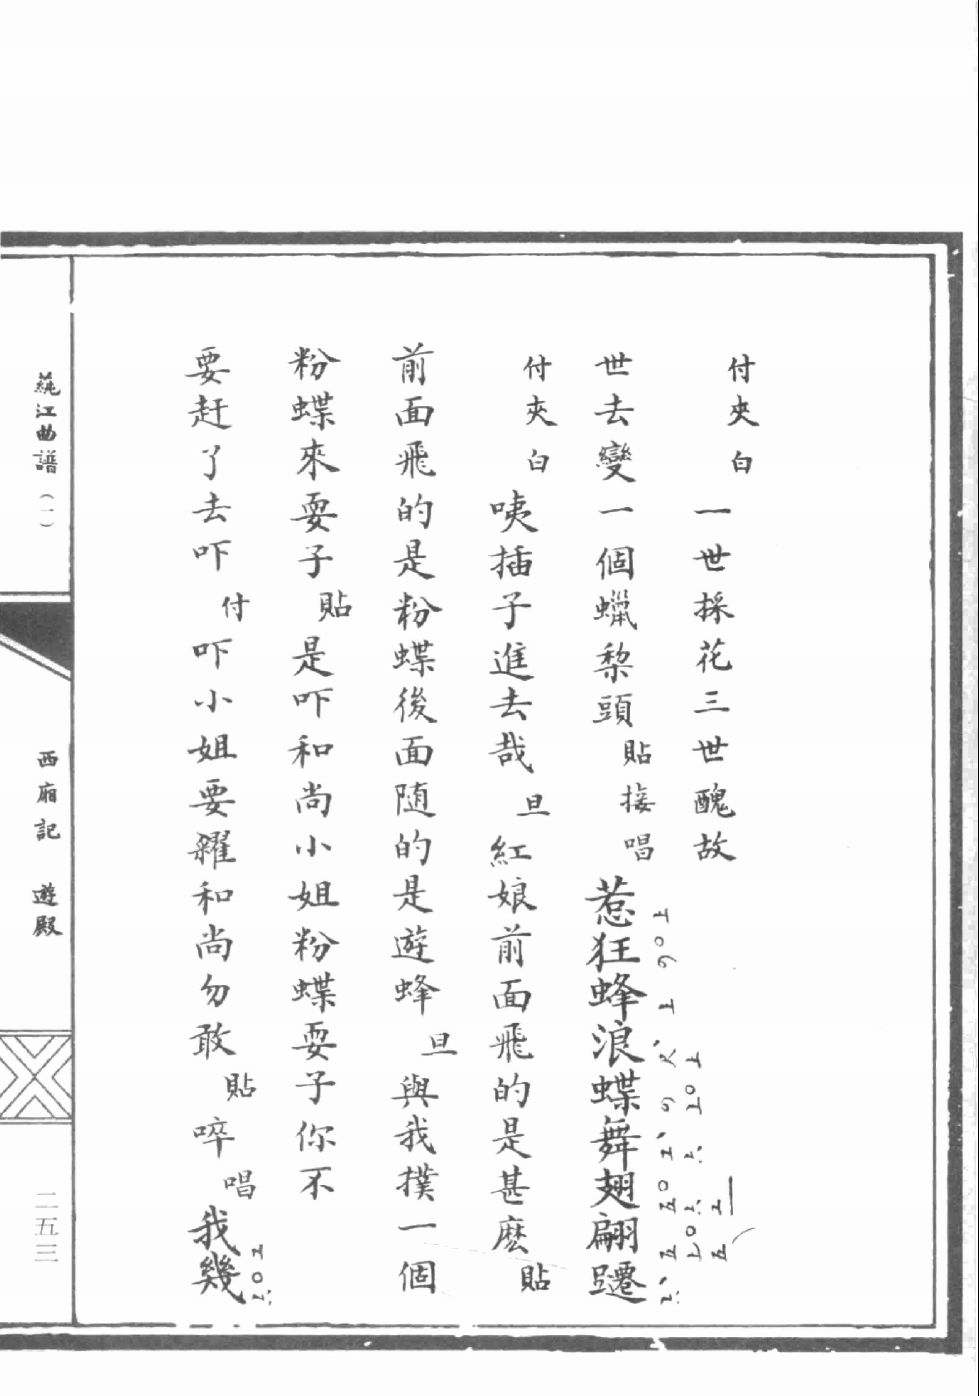 付夾白 一世採花三世醜故
世去變一個蠟梨頭 貼接唱 惹狂蜂浪蝶舞翅翩躚
付夾白 咦插子進去哉 旦 紅娘前面飛的是甚麽 貼
前面飛的是粉蝶後面随的是遊蜂 旦 與我撲一個
粉蝶來耍子 貼 是吓和尚小姐粉蝶耍子你不
要赶了去吓 付 吓小姐要糴和尚勿敢 貼 啐 唱 我幾
江曲譜(一)
西廂記 遊殿
二五三